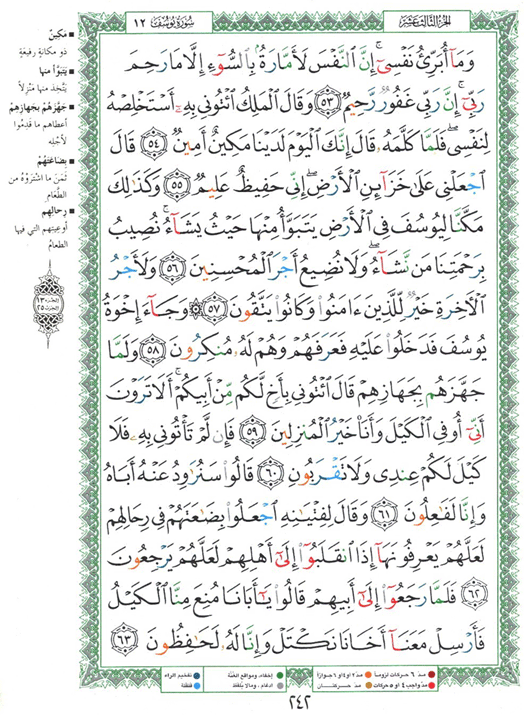 الجزء الثالث عشر
سورة يوسف ١٢
وَمَآ أُبَرِّئُ نَفْسِىٓ ۚ إِنَّ ٱلنَّفْسَ لَأَمَّارَةٌۢ بِٱلسُّوٓءِ إِلَّا مَا رَحِمَ
رَبِّىٓ ۚ إِنَّ رَبِّى غَفُورٌ رَّحِيمٌ ٥٣ وَقَالَ ٱلْمَلِكُ ٱئْتُونِى بِهِۦٓ أَسْتَخْلِصْهُ
لِنَفْسِى ۖ فَلَمَّا كَلَّمَهُۥ قَالَ إِنَّكَ ٱلْيَوْمَ لَدَيْنَا مَكِينٌ أَمِينٌ ٥٤ قَالَ
ٱجْعَلْنِى عَلَىٰ خَزَآئِنِ ٱلْأَرْضِ ۖ إِنِّى حَفِيظٌ عَلِيمٌ ٥٥ وَكَذَٰلِكَ
مَكَّنَّا لِيُوسُفَ فِى ٱلْأَرْضِ يَتَبَوَّأُ مِنْهَا حَيْثُ يَشَآءُ ۚ نُصِيبُ
بِرَحْمَتِنَا مَن نَّشَآءُ ۖ وَلَا نُضِيعُ أَجْرَ ٱلْمُحْسِنِينَ ٥٦ وَلَأَجْرُ
ٱلْـَٔاخِرَةِ خَيْرٌ لِّلَّذِينَ ءَامَنُوا۟ وَكَانُوا۟ يَتَّقُونَ ٥٧ ۞ وَجَآءَ إِخْوَةُ
يُوسُفَ فَدَخَلُوا۟ عَلَيْهِ فَعَرَفَهُمْ وَهُمْ لَهُۥ مُنكِرُونَ ٥٨ وَلَمَّا
جَهَّزَهُم بِجَهَازِهِمْ قَالَ ٱئْتُونِى بِأَخٍ لَّكُم مِّنْ أَبِيكُمْ ۚ أَلَا تَرَوْنَ
أَنِّىٓ أُوفِى ٱلْكَيْلَ وَأَنَا۠ خَيْرُ ٱلْمُنزِلِينَ ٥٩ فَإِن لَّمْ تَأْتُونِى بِهِۦ فَلَا
كَيْلَ لَكُمْ عِندِى وَلَا تَقْرَبُونِ ٦٠ قَالُوا۟ سَنُرَٰوِدُ عَنْهُ أَبَاهُ
وَإِنَّا لَفَٰعِلُونَ ٦١ وَقَالَ لِفِتْيَٰنِهِ ٱجْعَلُوا۟ بِضَٰعَتَهُمْ فِى رِحَالِهِمْ
لَعَلَّهُمْ يَعْرِفُونَهَآ إِذَا ٱنقَلَبُوٓا۟ إِلَىٰٓ أَهْلِهِمْ لَعَلَّهُمْ يَرْجِعُونَ
٦٢ فَلَمَّا رَجَعُوٓا۟ إِلَىٰٓ أَبِيهِمْ قَالُوا۟ يَٰٓأَبَانَا مُنِعَ مِنَّا ٱلْكَيْلُ
فَأَرْسِلْ مَعَنَآ أَخَانَا نَكْتَلْ وَإِنَّا لَهُۥ لَحَٰفِظُونَ ٦٣
مَكِينٌ
ذو مكانةٍ رفيعةٍ
يَتَبَوَّأُ منها
يتّخذ منها منزلاً
جَهَّزَهُمْ بجَهازِهِمْ
أعطاهم ما قدِموا
لأجلِه
بِضاعَتَهُمْ
ثمن ما اشتروه من
الطّعام
رِحالِهم
أوعيتهم التي فيها
الطعام
الجزء ١٣
الحزب ٢٥
مد ٦ حركات لزوماً
مد ٢ أو ٤ أو ٦ جوازاً
إخفاء، ومواقع الغنّة
تفخيم الراء
مد واجب ٤ أو ٥ حركات
مد حركتان
ادغام، وما لا يُلفظ
قلقلة
٢٤٢